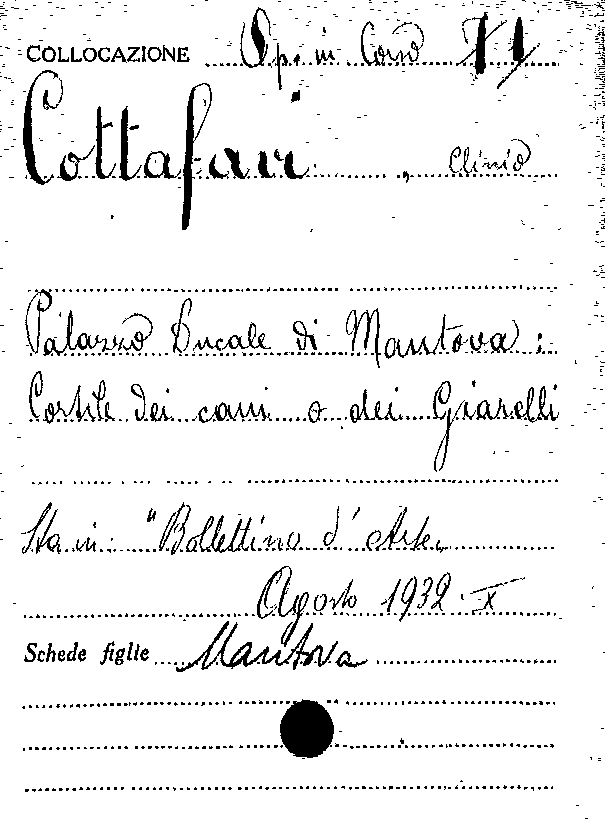 COLLOCAZIONE Op. in Corso
Cottafavi, Clinio
Palazzo Ducale di Mantova:
Cortile dei cani o dei Giarelli
Sta in: "Bollettino d'Arte„
Agosto 1932 · X
Schede figlie Mantova